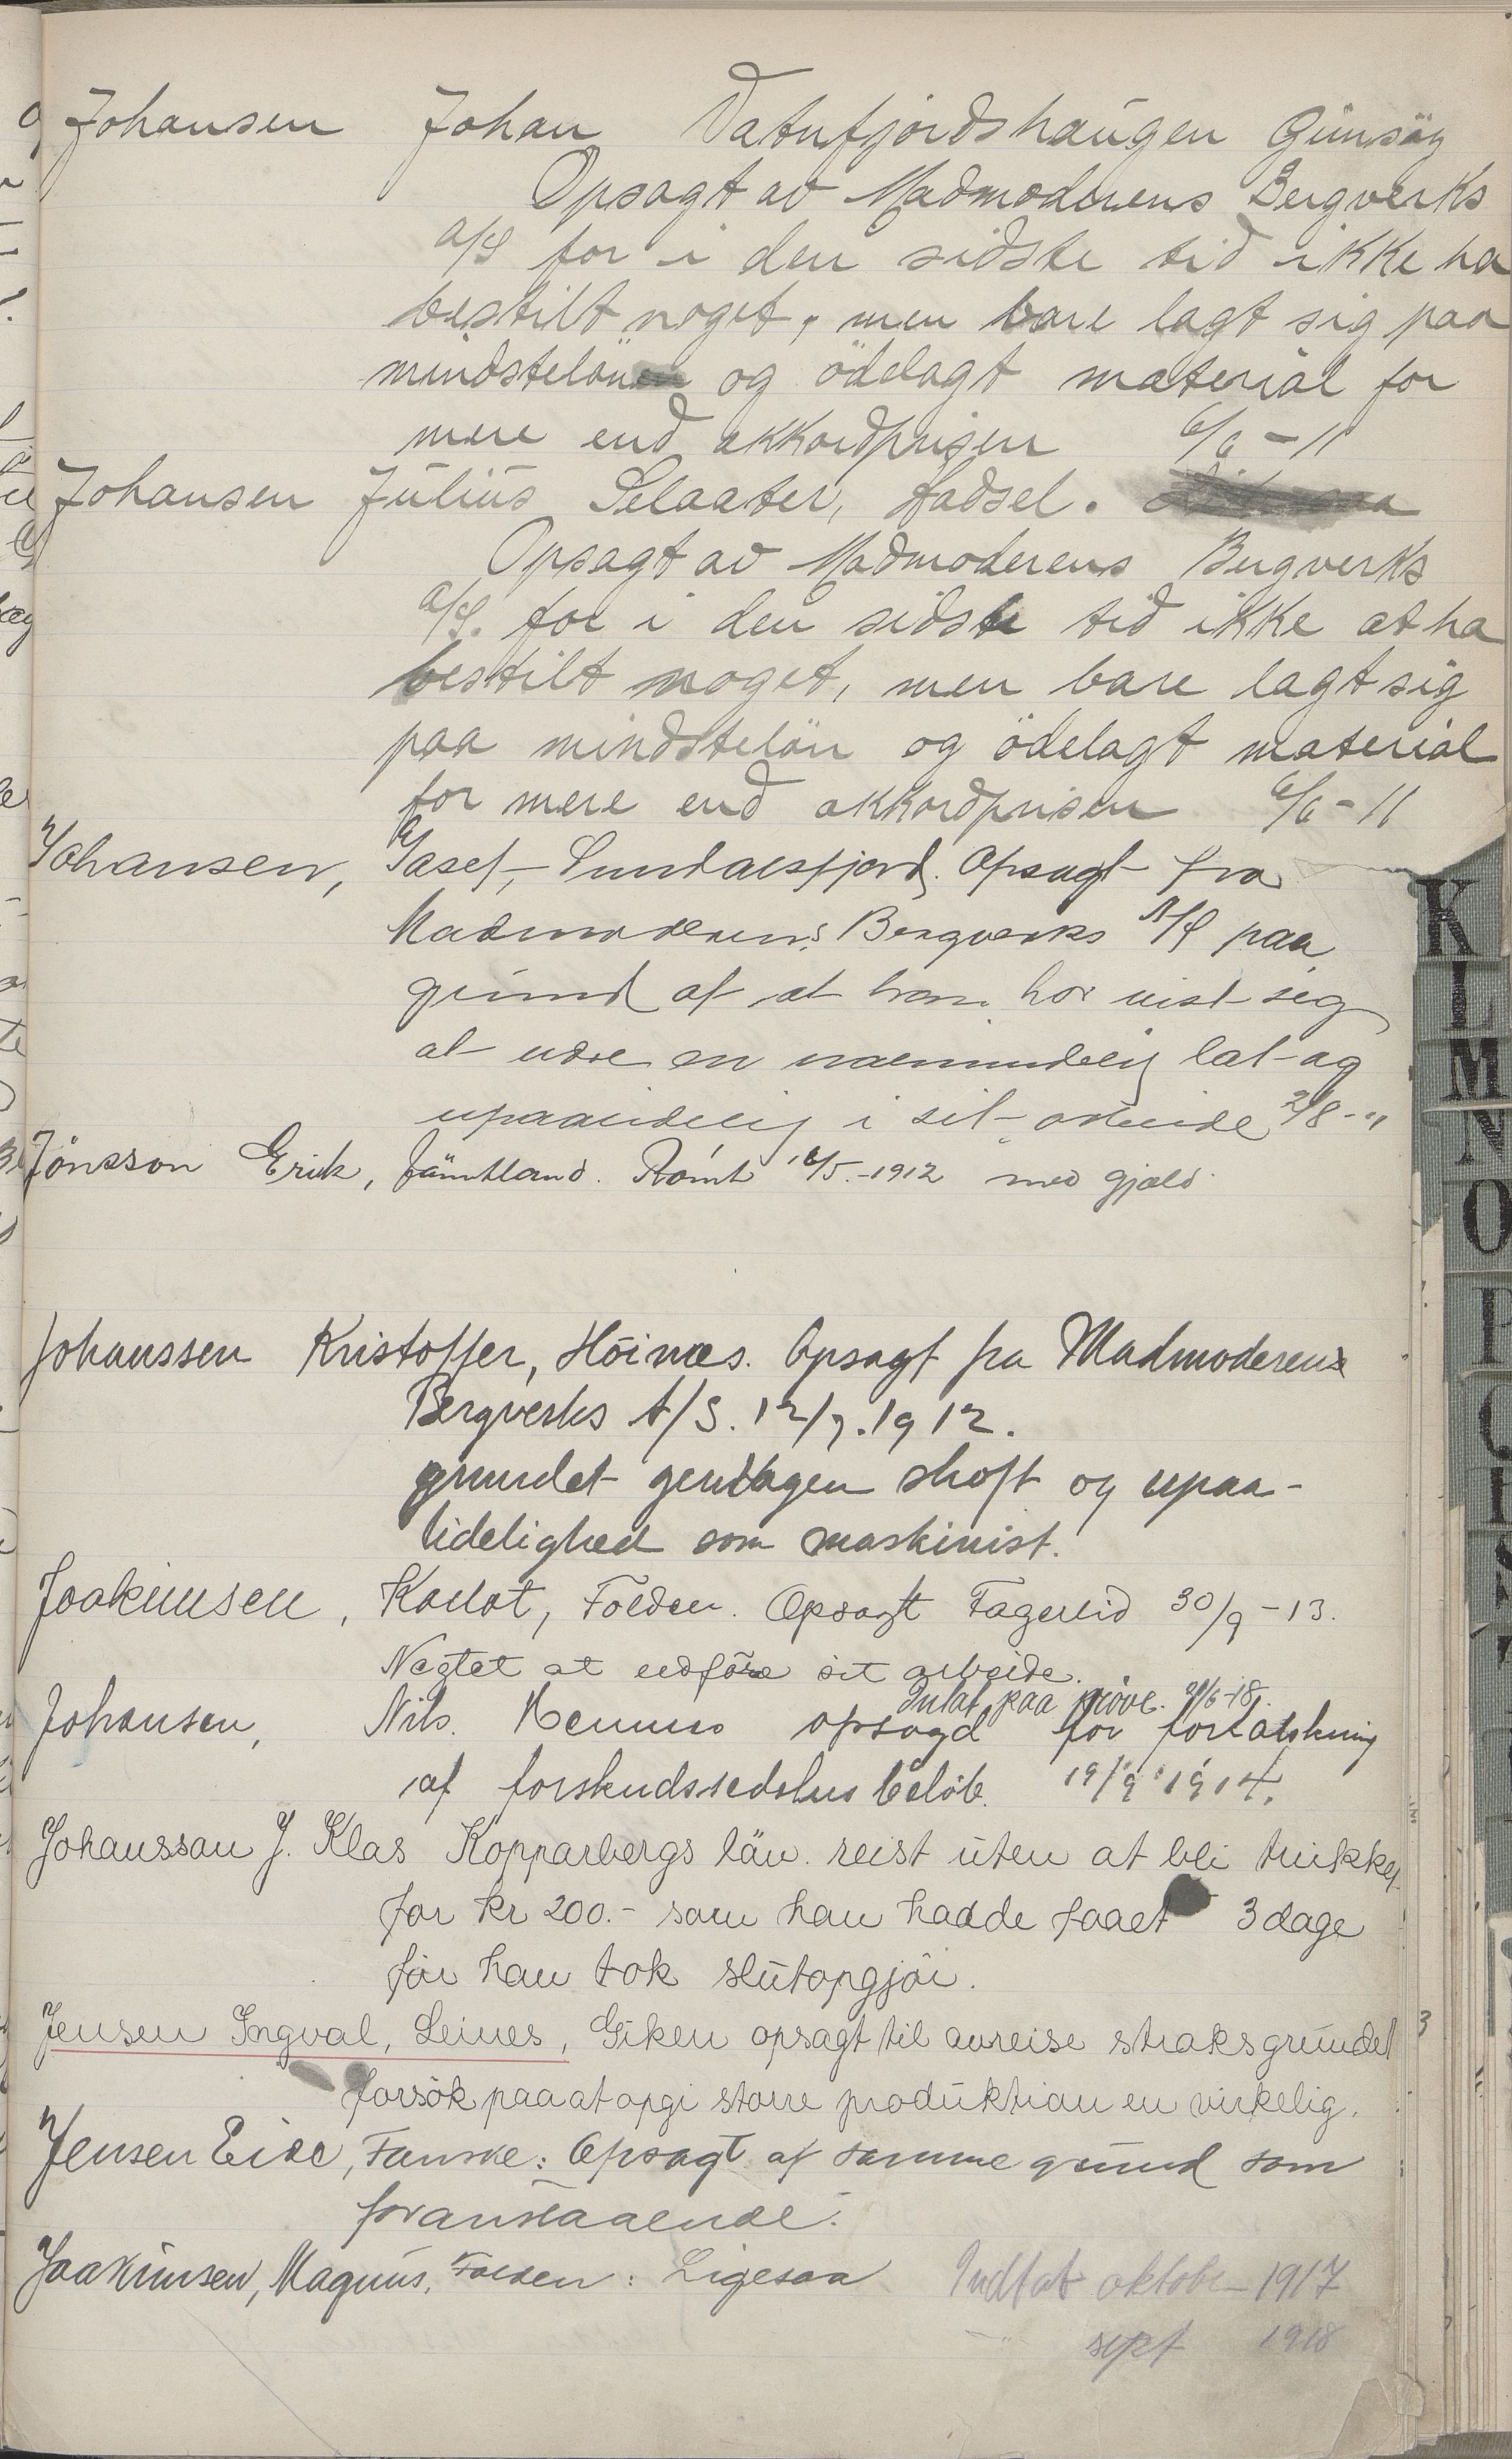 Johansen Johan Vatnfjordshaugen Gimsöy
Opsagt av Madmoderens Bergverks
A/S for i den sidste tid ikke ha
bestilt noget, men bare lagt sig paa
mindstelön og ödelagt material for
mere end akkordprisen 6/6 - 11
Johansen Julius Selaater, Hadsel.
Opsagt av Madmoderens Bergverks
A/S. for i den sidste tid ikke at ha
bestilt noget, men bare lagt sig
paa mindstelön og ödelagt material
for mere end akkordprisen 6/6 - 11
Johansen, Josef, Sundalsfjord. Opsagt fra
Madmoderens Bergverks A/S paa
grund af at han har vist sig
at være en ualmindelig lat og
upaalidelig i sit arbeide 2/8 - 11
Jönsson Erik, Jämtland. Römt 16/5.-1912 med gjæld.
Johanssen Kristoffer, Höinæs. Opsagt fra Madmoderens
Bergverks A/S. 12/7.1912.
grundet gentagen skoft og upaa-
lidelighed som maskinist.
Joakimsen, Konot, Folden. Opsagt Fagerlid 30/9 - 13.
Negtet at udföre sit arbeide.
Intat paa pröve. 21/6-18.
Johansen, Nils. opsagd for forfalskning
af forskudssedelens belöb. 19/9 1914.
Johansson J. Klas Kopparbergs län. reist uten at bli trukket
for kr 200.- som han hadde faaet 3 dage
för han tok slutopgjör.
Jensen Ingval, Leines, Giken opsagt til avreise straks grundet
forsök paa at opgi større produktion en virkelig.
Jensen Eise, Fauske: Opsagt af samme grund som
foranstaaende.
Joakimsen, Magnus, Folden: Ligesaa Indtat oktober 1917
-"- sept 1918
K
L
M
N
O
P
3